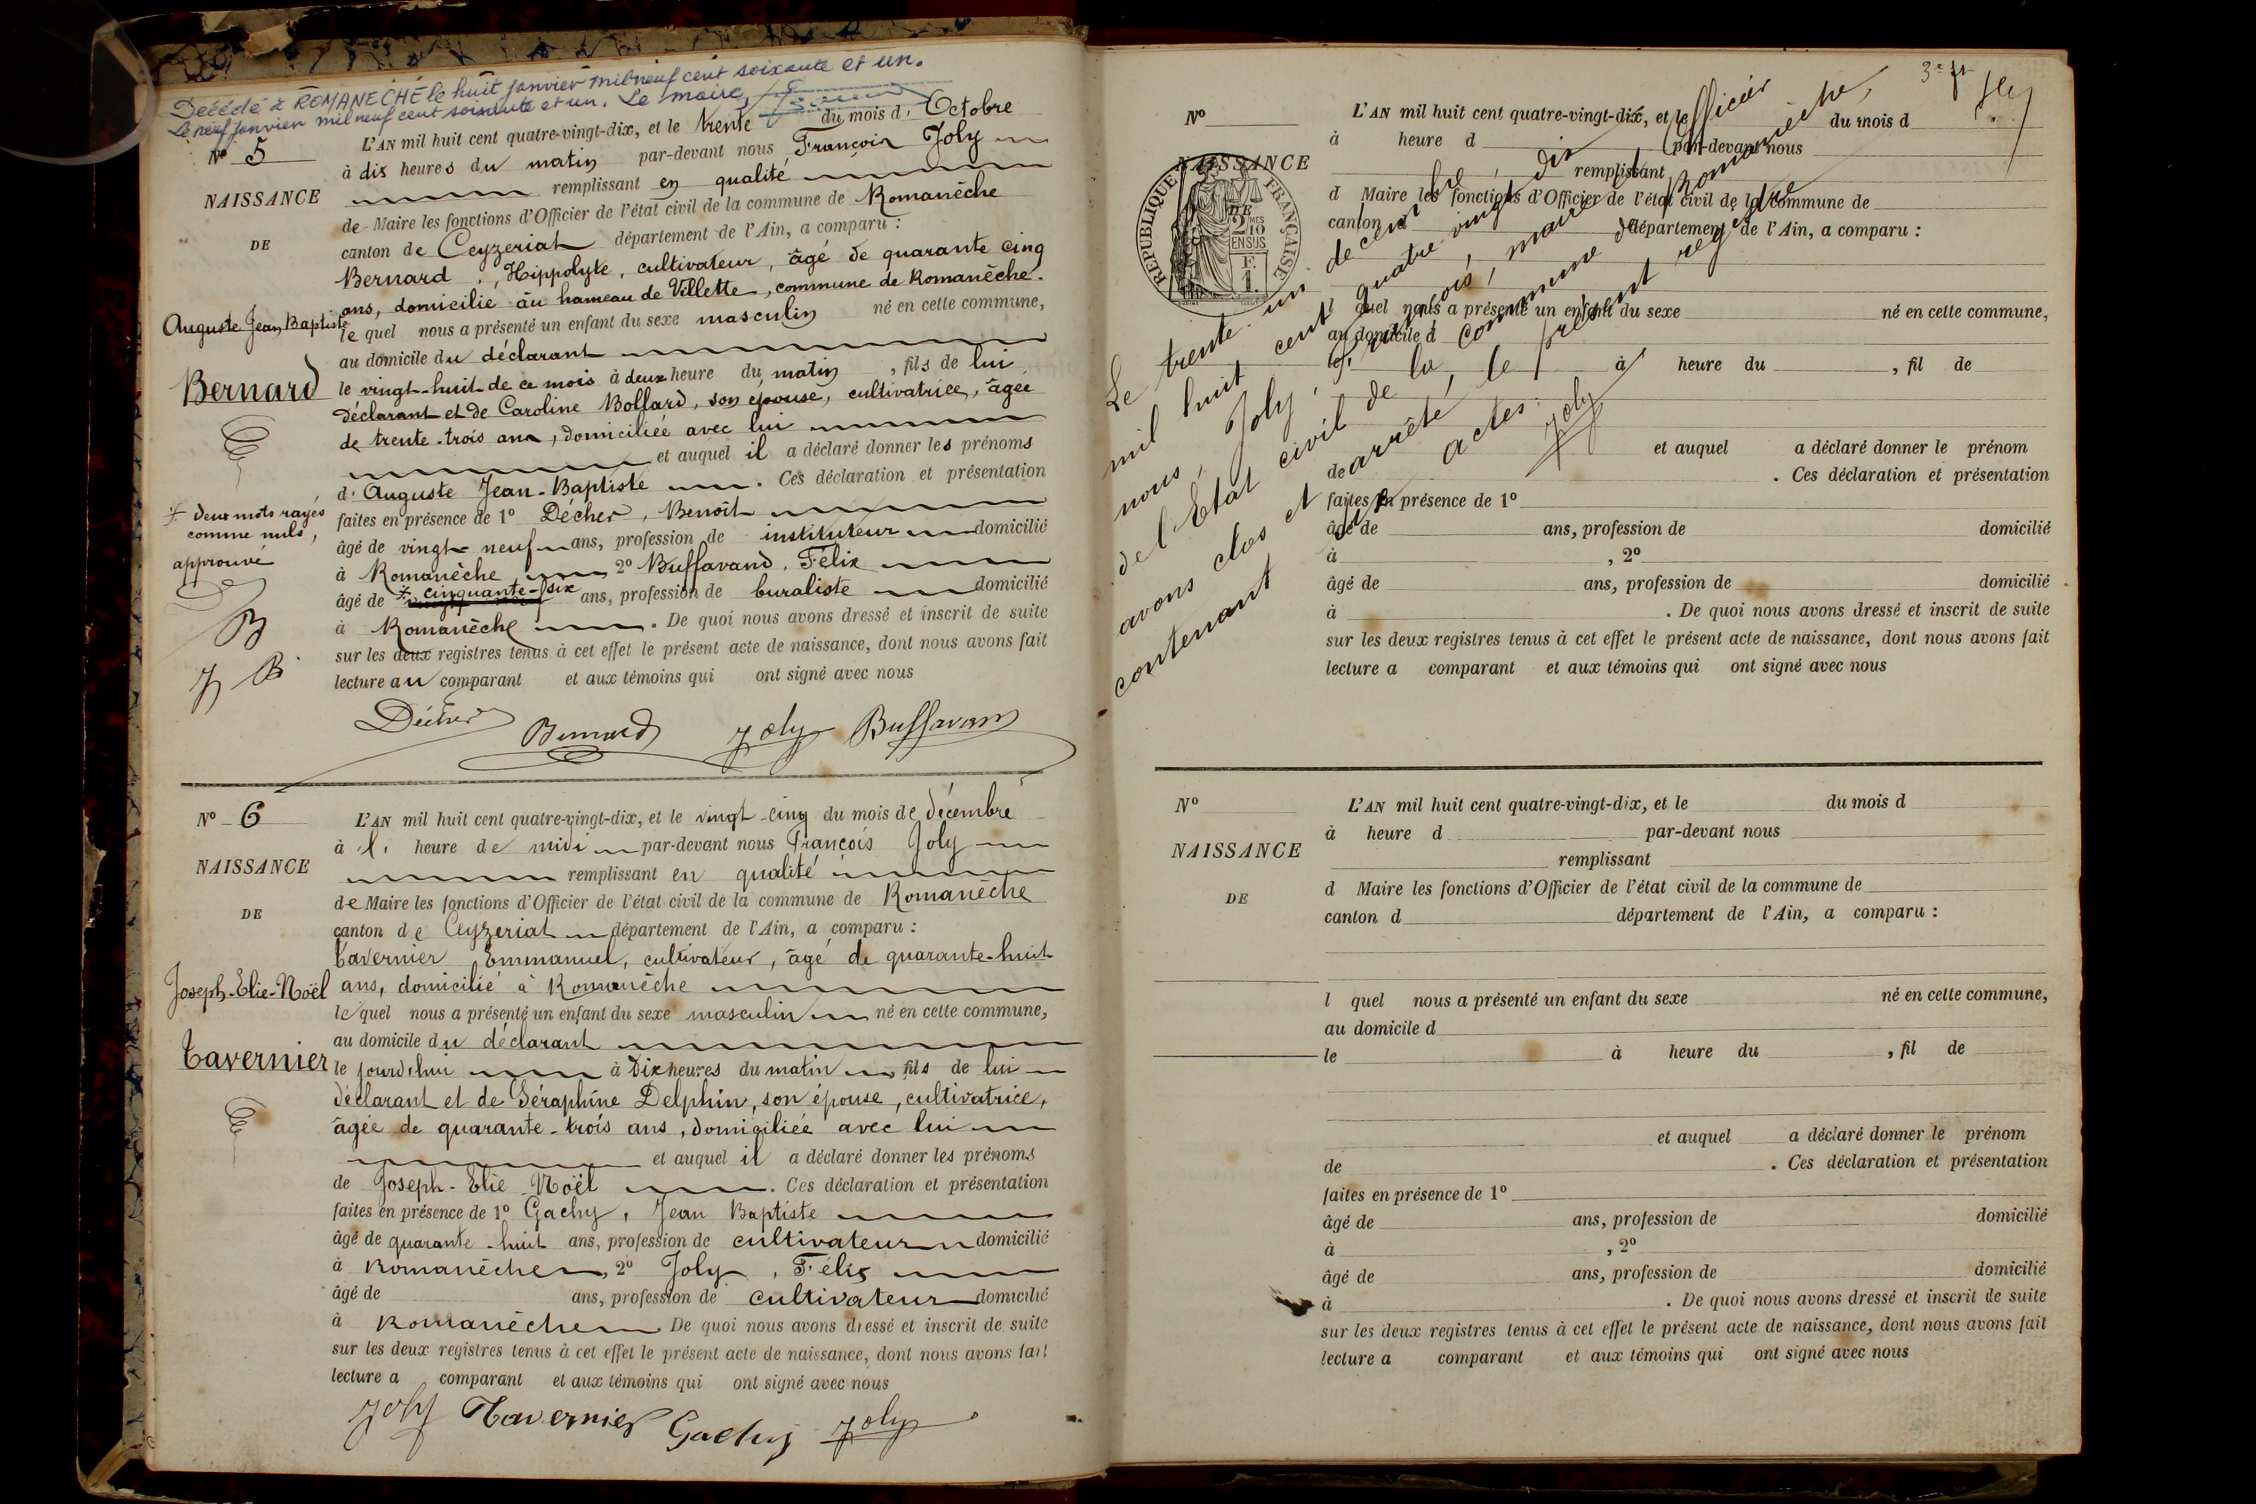 Décédé à ROMANECHE le huit janvier mil neuf cent soixante et un.
Le neuf janvier mil neuf cent soixante et un. Le maire,
Nº 5
NAISSANCE
DE
Auguste Jean Baptiste
Bernard
≠ deux mots rayés
comme nuls,
approuvé
B
J B
L'AN mil huit cent quatre-vingt-dix, et le trente du mois d' Octobre
à dix heures du matin par-devant nous François Joly
remplissant en qualité
de Maire les fonctions d'Officier de l'état civil de la commune de Romanèche
canton de Ceyzeriat département de l'Ain, a comparu :
Bernard, Hippolyte, cultivateur, âgé de quarante cinq
ans, domicilié au hameau de Villette, commune de Romanèche.
lequel nous a présenté un enfant du sexe masculin né en cette commune,
au domicile du déclarant
le vingt-huit de ce mois à deux heure du matin, fils de lui
déclarant et de Caroline Bollard, son épouse, cultivatrice, âgée
de trente-trois ans, domiciliée avec lui
et auquel il a déclaré donner les prénoms
d' Auguste Jean-Baptiste. Ces déclaration et présentation
faites en présence de 1º Décher, Benoît
âgé de vingt-neuf ans, profession de instituteur domicilié
à Romanèche 2º Buffavand, Félix
âgé de ≠ cinquante-six ans, profession de buraliste domicilié
à Romanèche. De quoi nous avons dressé et inscrit de suite
sur les deux registres tenus à cet effet le présent acte de naissance, dont nous avons fait
lecture au comparant et aux témoins qui ont signé avec nous
Décher Bernard Joly Buffavand
Nº 6
NAISSANCE
DE
Joseph-Elie-Noël
Tavernier
L'AN mil huit cent quatre-vingt-dix, et le vingt-cinq du mois de décembre
à l' heure de midi par-devant nous François Joly
remplissant en qualité
de Maire les fonctions d'Officier de l'état civil de la commune de Romanèche
canton de Ceyzeriat département de l'Ain, a comparu :
Tavernier Emmanuel, cultivateur, âgé de quarante-huit
ans, domicilié à Romanèche
lequel nous a présenté un enfant du sexe masculin né en cette commune,
au domicile du déclarant
le jourd'hui à dix heures du matin, fils de lui
déclarant et de Séraphine Delphin, son épouse, cultivatrice,
âgée de quarante-trois ans, domiciliée avec lui
et auquel il a déclaré donner les prénoms
de Joseph-Elie-Noël. Ces déclaration et présentation
faites en présence de 1º Gachy, Jean Baptiste
âgé de quarante-huit ans, profession de cultivateur domicilié
à Romanèche, 2º Joly, Félix
âgé de ans, profession de cultivateur domicilié
à Romanèche De quoi nous avons dressé et inscrit de suite
sur les deux registres tenus à cet effet le présent acte de naissance, dont nous avons fait
lecture a comparant et aux témoins qui ont signé avec nous
Joly Tavernier Gachy Joly
Nº
NAISSANCE
DE
RÉPUBLIQUE FRANÇAISE
2 MES 10
EN SUS
F. 1.
L'AN mil huit cent quatre-vingt-dix, et le du mois d
à heure d par-devant nous
remplissant
d Maire les fonctions d'Officier de l'état civil de la commune de
canton d département de l'Ain, a comparu :
l quel nous a présenté un enfant du sexe né en cette commune,
au domicile d
le à heure du , fil de
et auquel a déclaré donner le prénom
de . Ces déclaration et présentation
faites en présence de 1º
âgé de ans, profession de domicilié
à , 2º
âgé de ans, profession de domicilié
à . De quoi nous avons dressé et inscrit de suite
sur les deux registres tenus à cet effet le présent acte de naissance, dont nous avons fait
lecture a comparant et aux témoins qui ont signé avec nous
Le trente-un décembre,
mil huit cent quatre vingt dix
nous, Joly, François, maire et Officier
de l'Etat civil de la commune de Romanèche,
avons clos et arrêté, le présent registre
contenant six actes.
Joly
Nº
NAISSANCE
DE
L'AN mil huit cent quatre-vingt-dix, et le du mois d
à heure d par-devant nous
remplissant
d Maire les fonctions d'Officier de l'état civil de la commune de
canton d département de l'Ain, a comparu :
l quel nous a présenté un enfant du sexe né en cette commune,
au domicile d
le à heure du , fil de
et auquel a déclaré donner le prénom
de . Ces déclaration et présentation
faites en présence de 1º
âgé de ans, profession de domicilié
à , 2º
âgé de ans, profession de domicilié
à . De quoi nous avons dressé et inscrit de suite
sur les deux registres tenus à cet effet le présent acte de naissance, dont nous avons fait
lecture a comparant et aux témoins qui ont signé avec nous